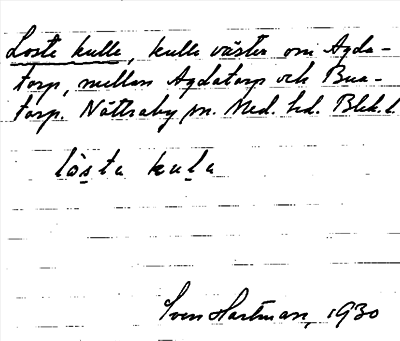 Loste kulle, kulle väster om Agda-
torp, mellan Agdatorp och Bua-
torp. Nättraby sn. Med. hd. Blek. l.
lösta kula
Sven Hartman, 1930